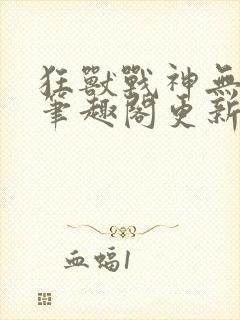 狂獸戰神無
筆趣閣更新
血蝠1